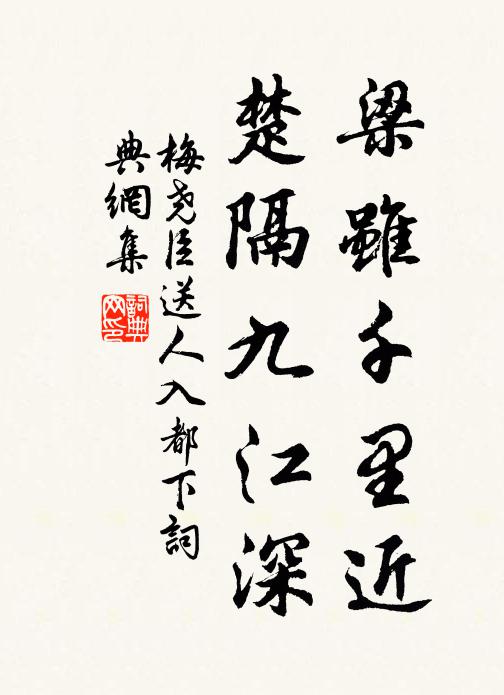 梁雖千里近
楚隔九江深
梅堯臣送人入都下詞
典網集
詞典网印